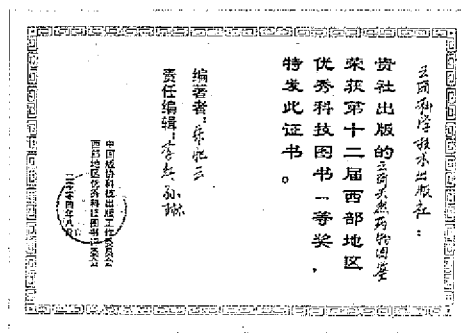 云南科学技术出版社：
贵社出版的云南天然药物图鉴
荣获第十二届西部地区
优秀科技图书一等奖，
特发此证书。
编著者：朱兆云
责任编辑：李红、孙琳
中国版协科技出版工作委员会
西部地区优秀科技图书评委会
二零零四年八月